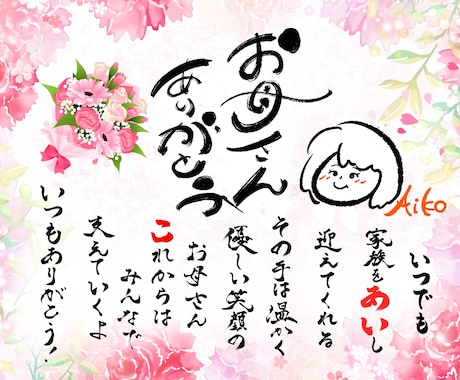 お母さん
ありがとう
Aiko
いつでも
家族をあいし
迎えてくれる
その手は温かく
優しい笑顔の
お母さん
これからは
みんなで
支えていくよ
いつもありがとう!